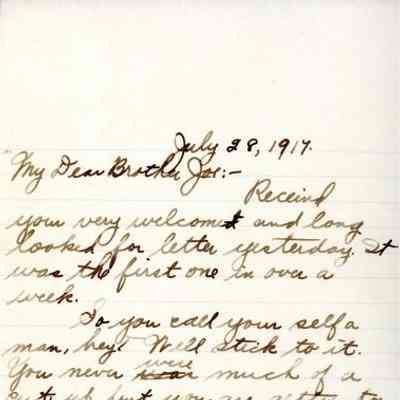 July 28, 1917.
"My Dear Brother Joe:-
Received
your very welcomed and long
looked for letter yesterday. It
was the first one in over a
week.
So you call your self a
man, hey? Well stick to it.
were
You never much of a
cut up but you are